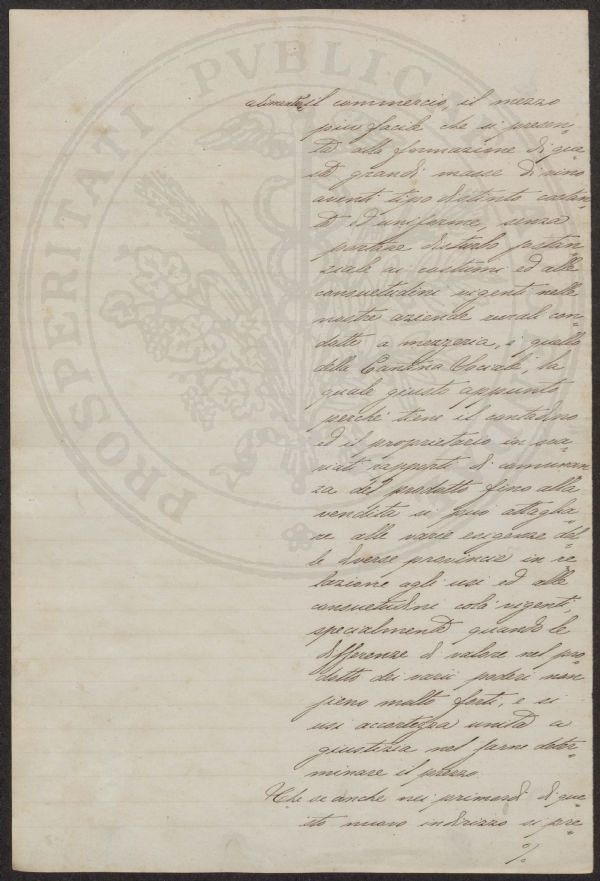 alimentare il commercio, il mezzo
più facile che si presen-
ta alla formazione di que-
ste grandi masse di vino
aventi tipo distinto costan-
te ed uniforme, senza
portare disturbo sostan-
ziale ai costumi ed alle
consuetudini vigenti nelle
nostre aziende rurali con-
dotte a mezzeria, è quello
delle Cantine Sociali, la
quale giusto appunto
perchè tiene il contadino
ed il proprietario in
rapporti di comunan-
za del prodotto fino alla
vendita si può attaglia-
re alle varie esigenze del-
le diverse provincie in re-
lazione agli usi ed alle
consuetudini colà vigenti,
specialmente quando le
differenze di valore nel pro-
dotto dei varii poderi non
sieno molto forti, e si
usi accortezza unita a
giustizia nel farne deter-
minare il prezzo.
Che se anche nei primordi di que-
sto nuovo indirizzo si pre-
·/.
PROSPERITATI PVBLICAE